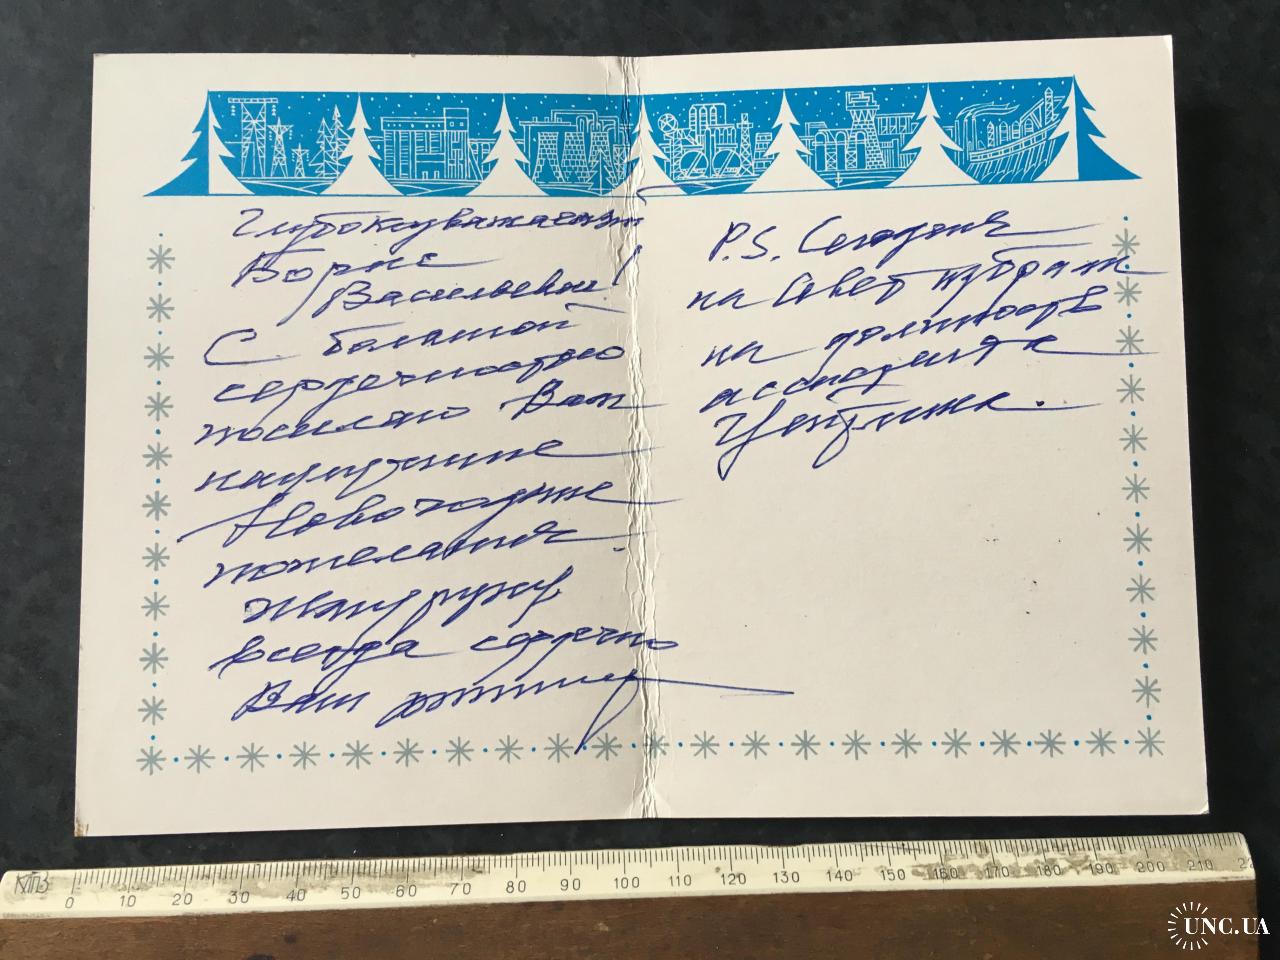 Глубокоуважаемый
Борис
Васильевич!
С большой
сердечностью
посылаю Вам
наилучшие
Новогодние
пожелания.
Жму руку
всегда сердечно
Ваш
P.S. Сегодня
на Совет избрали
на должность
ассистента
КТПЗ
0 10 20 30 40 50 60 70 80 90 100 110 120 130 140 150 160 170 180 190 200 210
UNC.UA